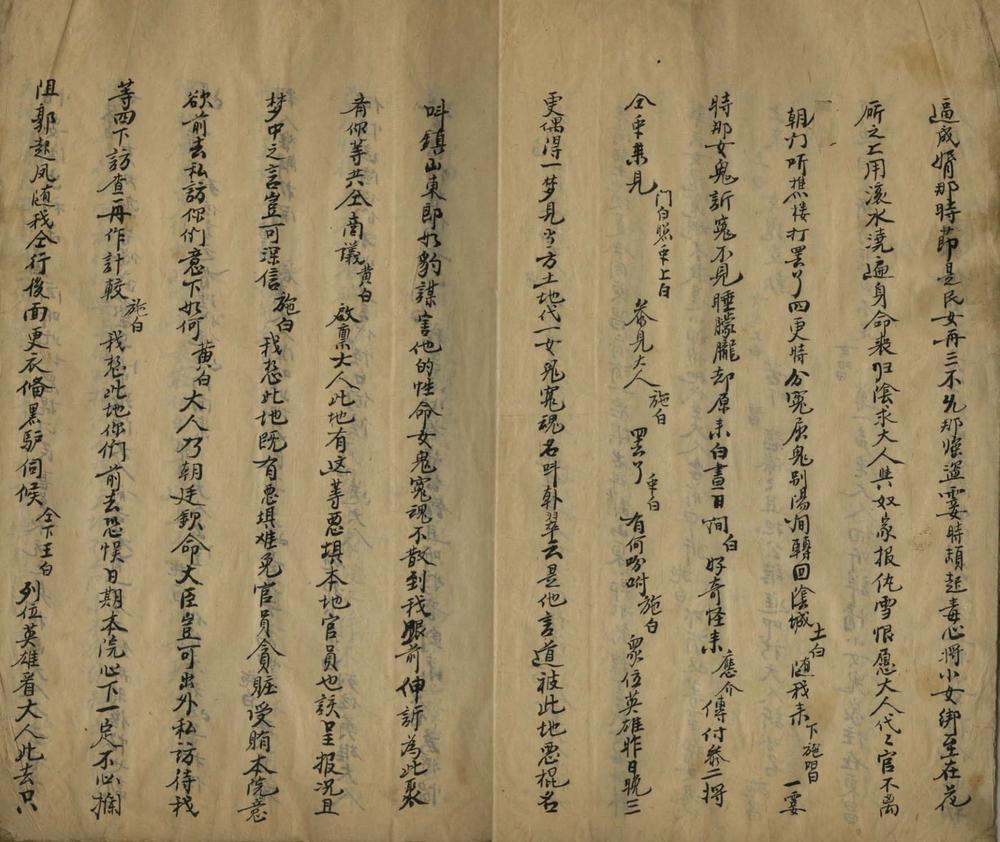 逼成婿那時節是民女再三不允那強盜霎時頓起毒心將小女绑至在花
所之上用滾水澆遍身命喪归陰求大人與奴家报仇雪恨愿大人代代官不离
朝门听樵楼打罢了四更時分冤屈鬼别陽间轉回陰城土白随我来下施唱一霎
時那女鬼訴冤不見睡朦朧却原来白晝日间白好奇怪来應介傳付叅二将
仝乖来見门白照乖上白叅見大人施白罢了乖白有何吩咐施白眾位英雄昨日晚三
更偶得一梦見当方土地代一女鬼冤魂名叫韩翠云是他言道被此地悪棍名
叫鎮山東郎如豹謀害他的性命女鬼冤魂不散到我眼前伸訴為此聚
斉你等共仝商議黄白啟禀大人此地有这等悪棍本地官員也該呈报况且
梦中之言豈可深信施白我想此地既有悪棍难免官員貪賍受賄本院意
欲前去私訪你們意下如何黄白大人乃朝廷欽命大臣豈可出外私訪待我
等四下訪查再作計較施白我想此地你們前去恐悮日期本院心下一定不必拦
阻郭起凤随我仝行後面更衣俻黒驴伺候仝下王白列位英雄看大人此去只